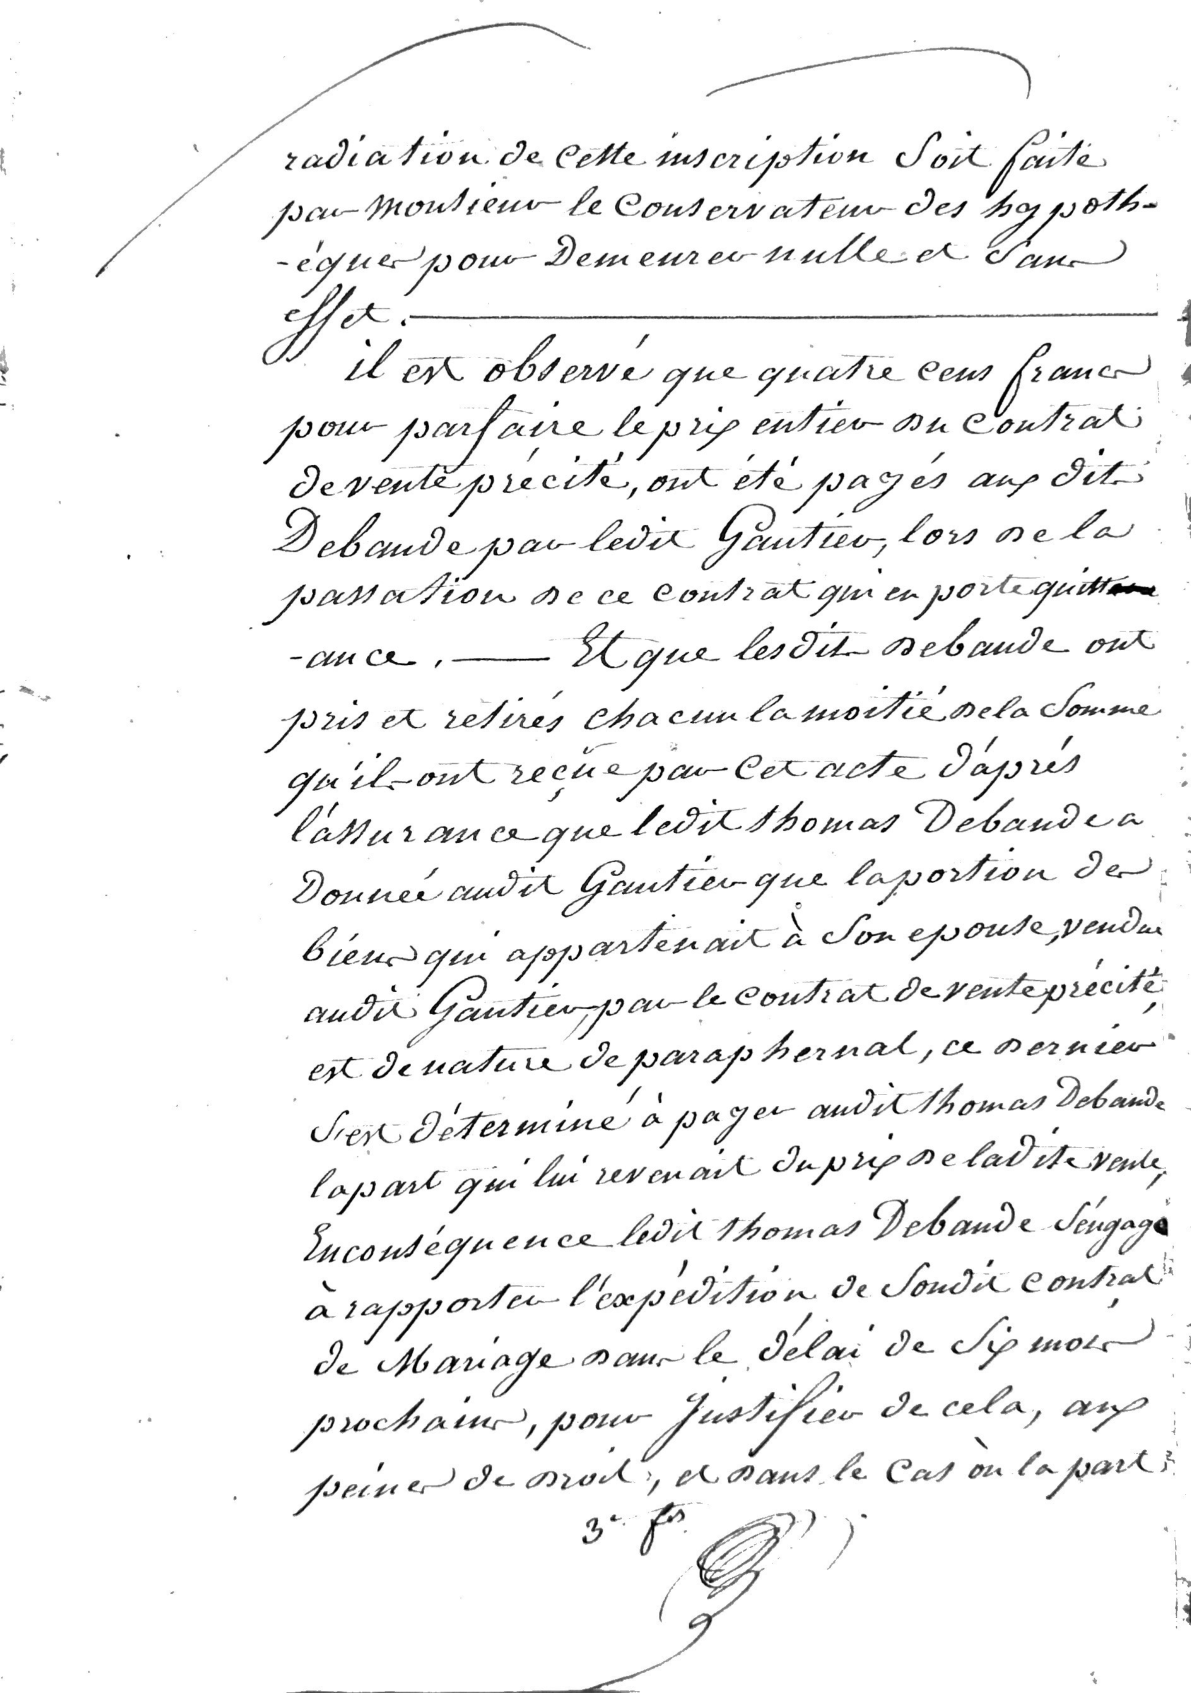 radiation de cette inscription soit faite
par monsieur le Conservateur des hypoth-
-éques pour Demeurer nulle et sans
effet.
il est observé que quatre cens francs
pour parfaire le prix entier du Contrat
de vente précité, ont été payés aux dits
Debaude par ledit Gautier, lors de la
passation de ce contrat qui en porte quitt
-ance. — Et que lesdits debaude ont
pris et retirés chacun la moitié de la somme
qu'ils ont reçüe par cet acte d'áprés
l'assurance que ledit thomas Debaude a
Donneé audit Gautier que la portion des
biens qui appartenait à son epouse, vendue
audit Gautier, par le contrat de vente précité,
est de nature de paraphernal, ce dernier
s'est déterminé à payer audit thomas Debaude
la part qui lui revenait du prix de ladite vente,
Enconséquence ledit thomas Debaude s'éngage
à rapporter l'éxpédition de sondit contrat
de Mariage dans le délai de six mois
prochains, pour justifier de cela, aux
peines de droit, et dans le cas où la part
3e fs